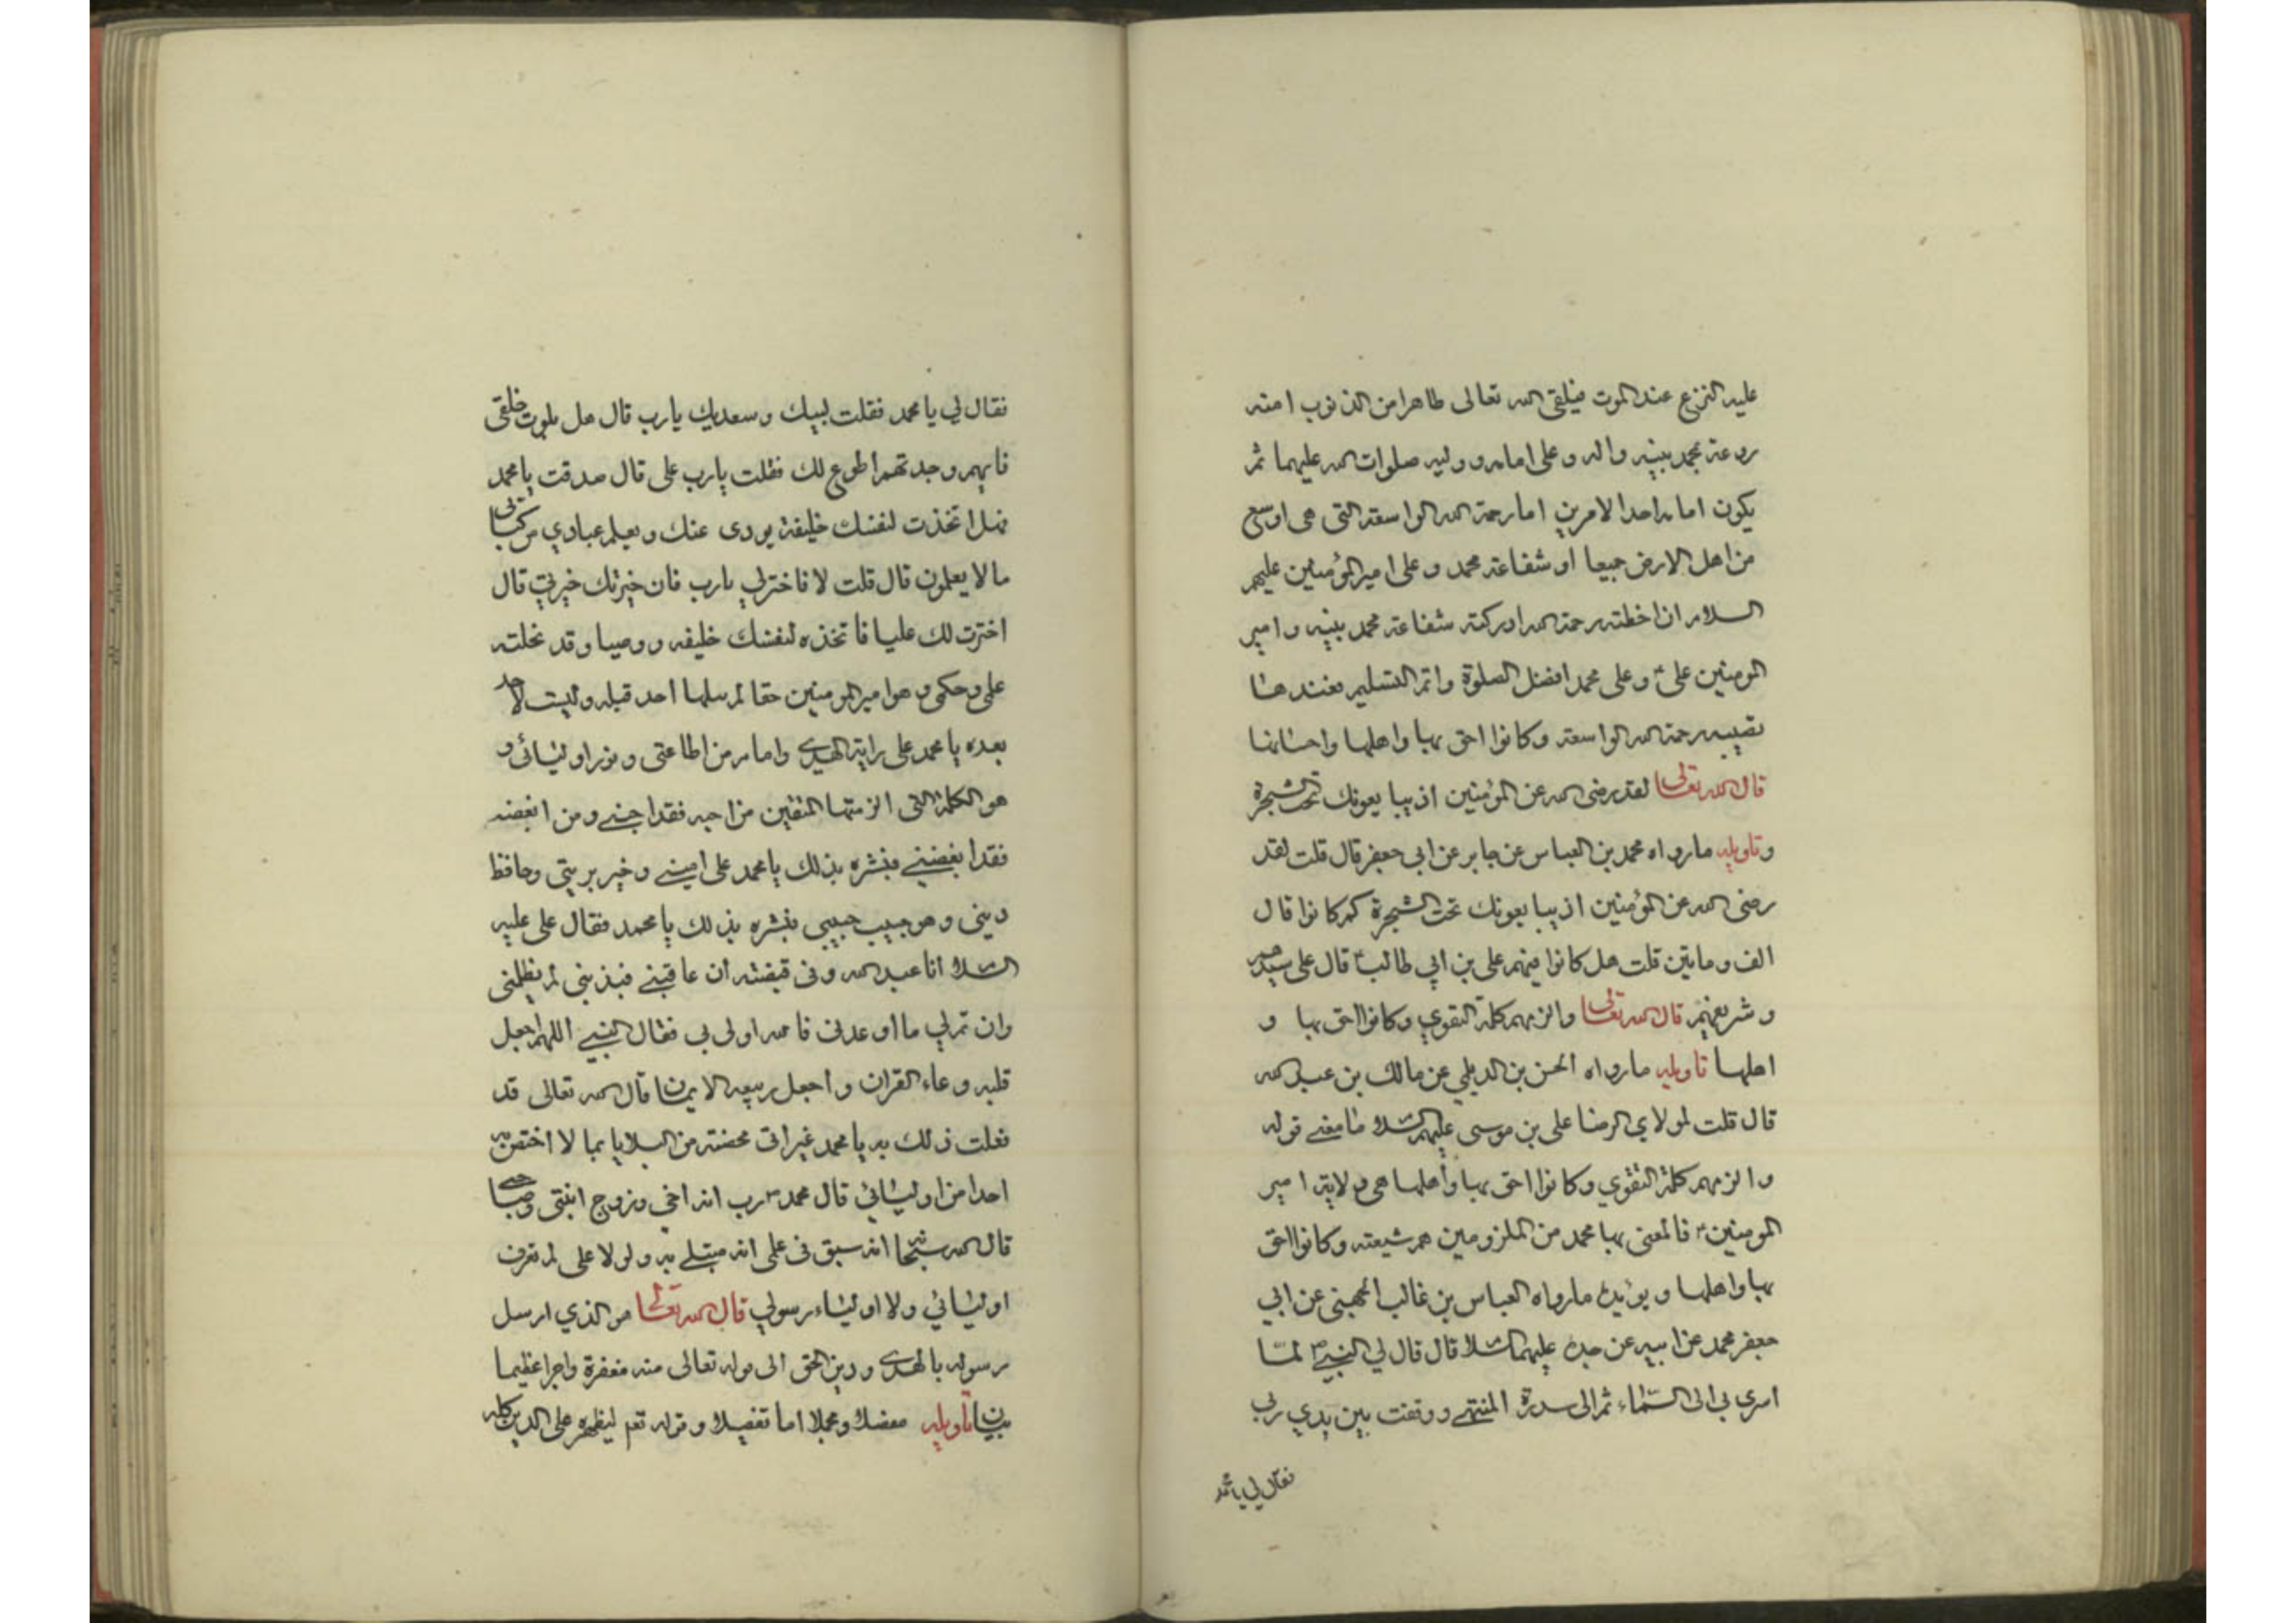 عليه النزع عند الموت فيلقى الله تعالى طاهرا من الذنوب امنه
روعته بمحمد نبيه واله وعلى امامه ووليه صلوات الله عليهما ثم
يكون امامه احد الامرين اما رحمة الله الواسعة التى هى اوسع
من اهل الارض جميعا او شفاعة محمد وعلى امير المؤمنين عليهم
السلام ان اخطته رحمة الله ادركته شفاعة محمد نبيه وامير
المومنين على وعلى محمد افضل الصلوة واتم التسليم فعندها
تصيبه رحمة الله الواسعة وكانوا احق بها واهلها واحسانها
قال الله تعالى لقد رضى الله عن المؤمنين اذ يبايعونك تحت الشجرة
وتاويله مارواه محمد بن العباس عن جابر عن ابي جعفر قال قلت لقد
رضى الله عن المؤمنين اذ يبايعونك تحت الشجرة كم كانوا قال
الف ومايتين قلت هل كانوا فيهم على بن ابي طالب قال على سيدهم
وشريفهم قال الله تعالى والزمهم كلمة التقوي وكانوا احق بها و
اهلها تاويله مارواه الحسن بن الديلمي عن مالك بن عبد الله
قال قلت لمولاي الرضا على بن موسى عليهم السلام ما معنى قوله
والزمهم كلمة التقوي وكانوا احق بها واهلها هى ولاية امير
المومنين فالمعنى بها محمد من الملزومين هم شيعته وكانوا احق
بها واهلها ويؤيده مارواه العباس بن غالب الجهنى عن ابي
جعفر محمد عن ابيه عن جده عليهما السلام قال قال لي النبي لما
اسرى بي الى السماء ثم الى سدرة المنتهى ووقفت بين يدي ربي
فقال لي يا محمد
فقال لي يا محمد فقلت لبيك وسعديك يارب قال هل بلوت خلقى
فايهم وجدتهم اطوع لك فقلت يارب على قال صدقت يا محمد
فهل اتخذت لنفسك خليفة يودى عنك ويعلم عبادي من كتابى
ما لا يعلمون قال قلت لا فاختر لي يارب فان خيرتك خيرتي قال
اخترت لك عليا فاتخذه لنفسك خليفه ووصيا وقد نحلته
علمى وحكمى وهو امير المومنين حقا لم سلها احد قبله وليست لاحد
بعده يا محمد على راية الهدي وامام من اطاعتى ونور اوليائى و
هو الكلمة التى الزمتها المتقين من احبه فقد احبني ومن ابغضه
فقد ابغضني فبشره بذلك يا محمد على اميني وخير بريتى وحافظ
ديني وهو حبيب حبيبى فبشره بذلك يا محمد فقال على عليه
السلام انا عبد الله وفى قبضته ان عاقبني فبذنبى لم يظلمنى
وان تم لي ما اوعدنى فالله اولى بى فقال النبي اللهم اجعل
قلبه وعاء القران واجعل ربيعه الايمان قال الله تعالى قد
فعلت ذلك به يا محمد غير انى مختصه من البلايا بما لا اختص به
احدا من اوليائي قال محمد رب انه اخى وزوج ابنتى وصاحبي
قال الله سبحانه انه سبق فى على انه مبتلي به ولولا على لم تعرف
اوليائي ولا اولياء رسولي قال الله تعالى هو الذي ارسل
رسوله بالهدي ودين الحق الى قوله تعالى منه مغفرة واجرا عظيما
بيان تاويله مفصلا ومجملا اما تفصيلا وقوله تعم ليظهره على الدين كله